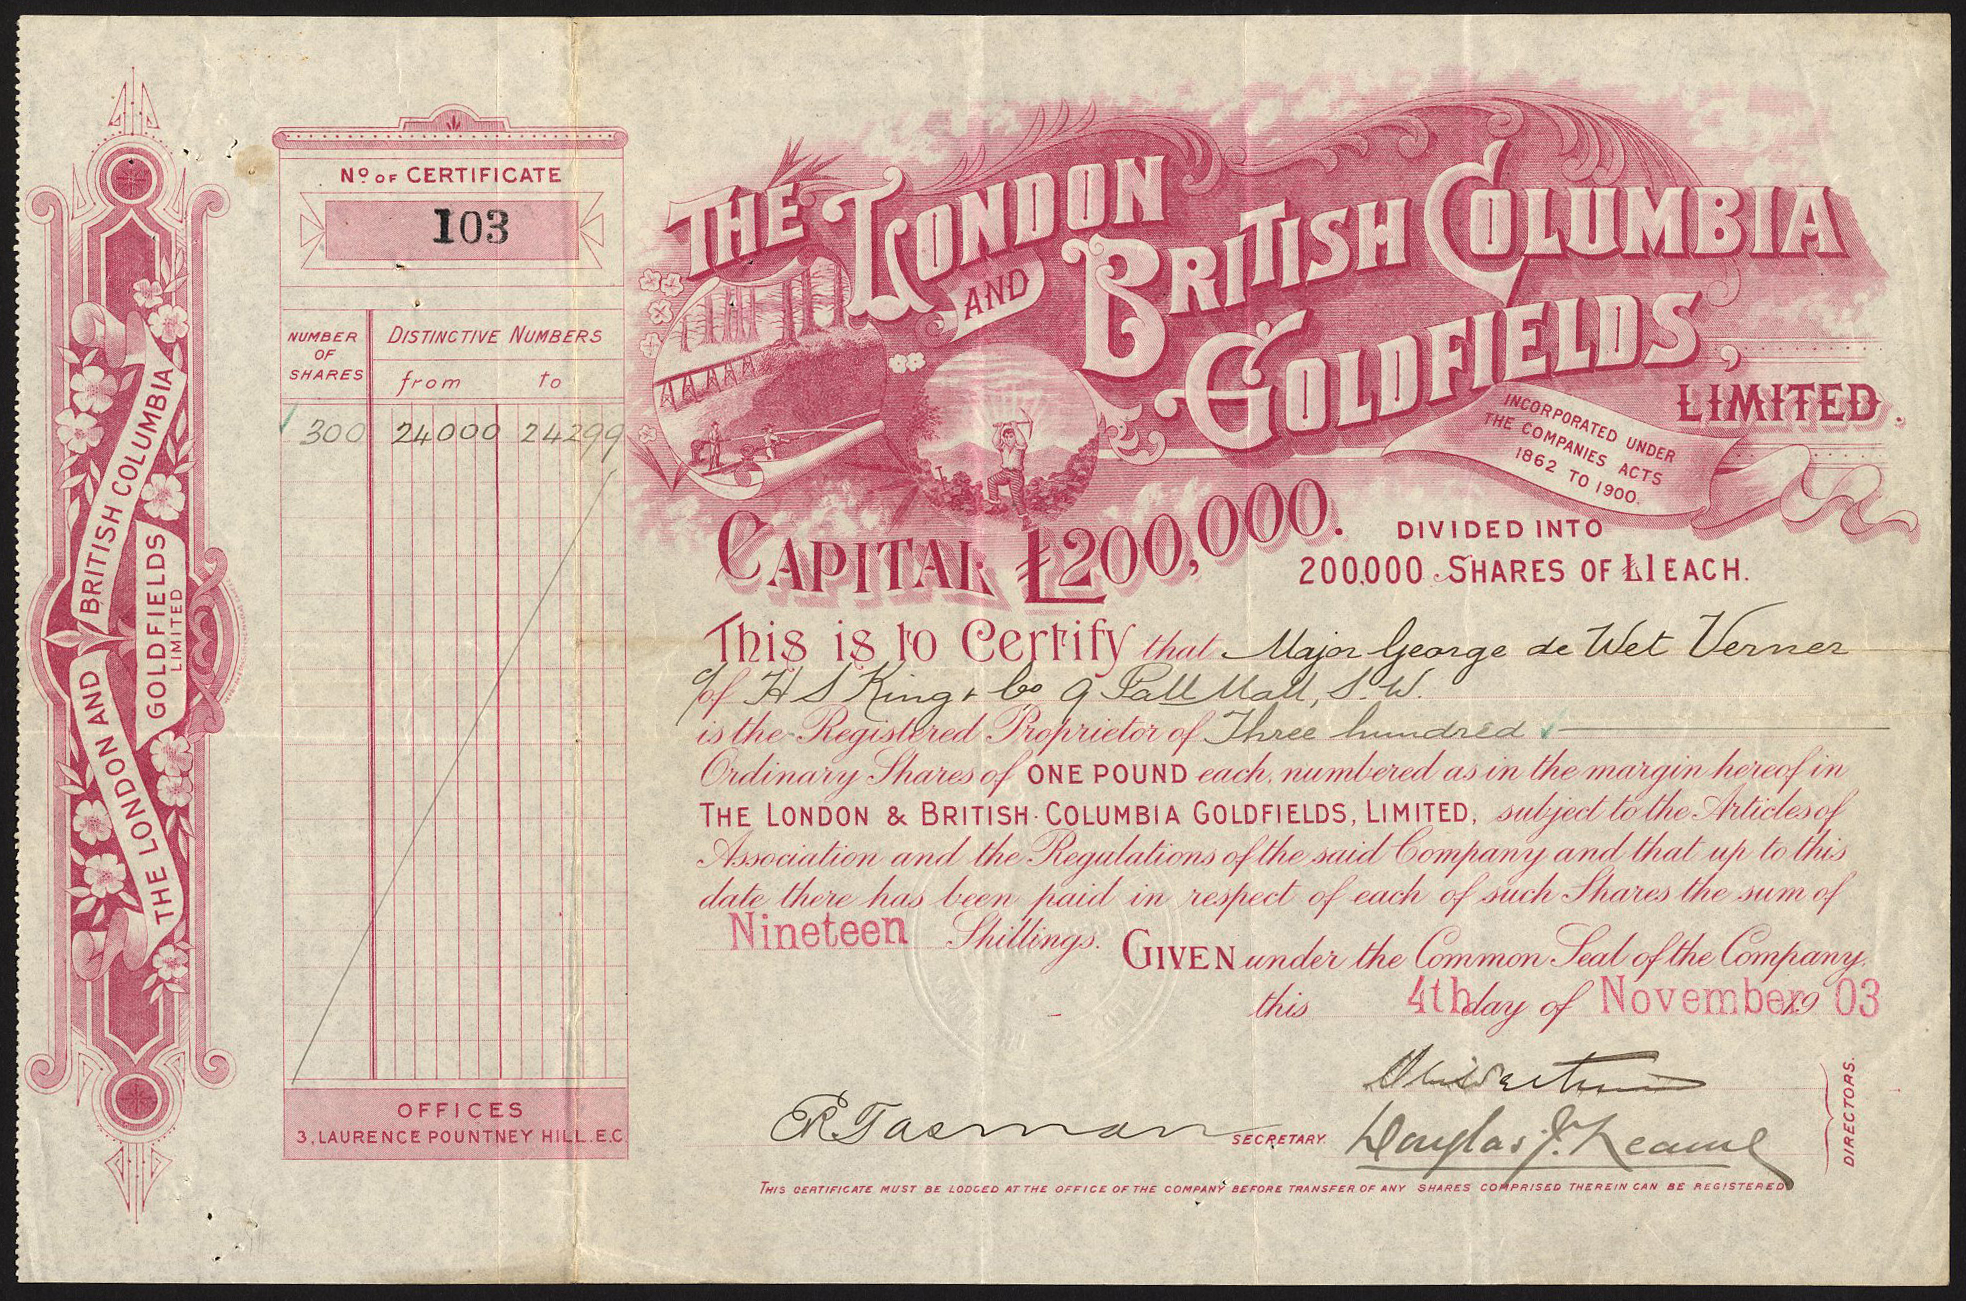 THE LONDON AND BRITISH COLUMBIA
GOLDFIELDS
LIMITED
No OF CERTIFICATE
103
NUMBER OF SHARES
DISTINCTIVE NUMBERS
from to
300 24000 24299
OFFICES
3, LAURENCE POUNTNEY HILL. E.C.
THE LONDON
AND BRITISH COLUMBIA
GOLDFIELDS,
LIMITED.
INCORPORATED UNDER
THE COMPANIES ACTS
1862 TO 1900.
CAPITAL £200,000.
DIVIDED INTO
200,000 SHARES OF £1 EACH.
This is to Certify that Major George de Wet Verner
of H S King & Co 9 Pall Mall, S.W.
is the Registered Proprietor of Three hundred
Ordinary Shares of ONE POUND each, numbered as in the margin hereof in
THE LONDON & BRITISH COLUMBIA GOLDFIELDS, LIMITED, subject to the Articles of
Association and the Regulations of the said Company and that up to this
date there has been paid in respect of each of such Shares the sum of
Nineteen Shillings. GIVEN under the Common Seal of the Company,
this 4th day of November 1903
R Tasman SECRETARY.
Douglas J.
DIRECTORS.
THIS CERTIFICATE MUST BE LODGED AT THE OFFICE OF THE COMPANY BEFORE TRANSFER OF ANY SHARES COMPRISED THEREIN CAN BE REGISTERED